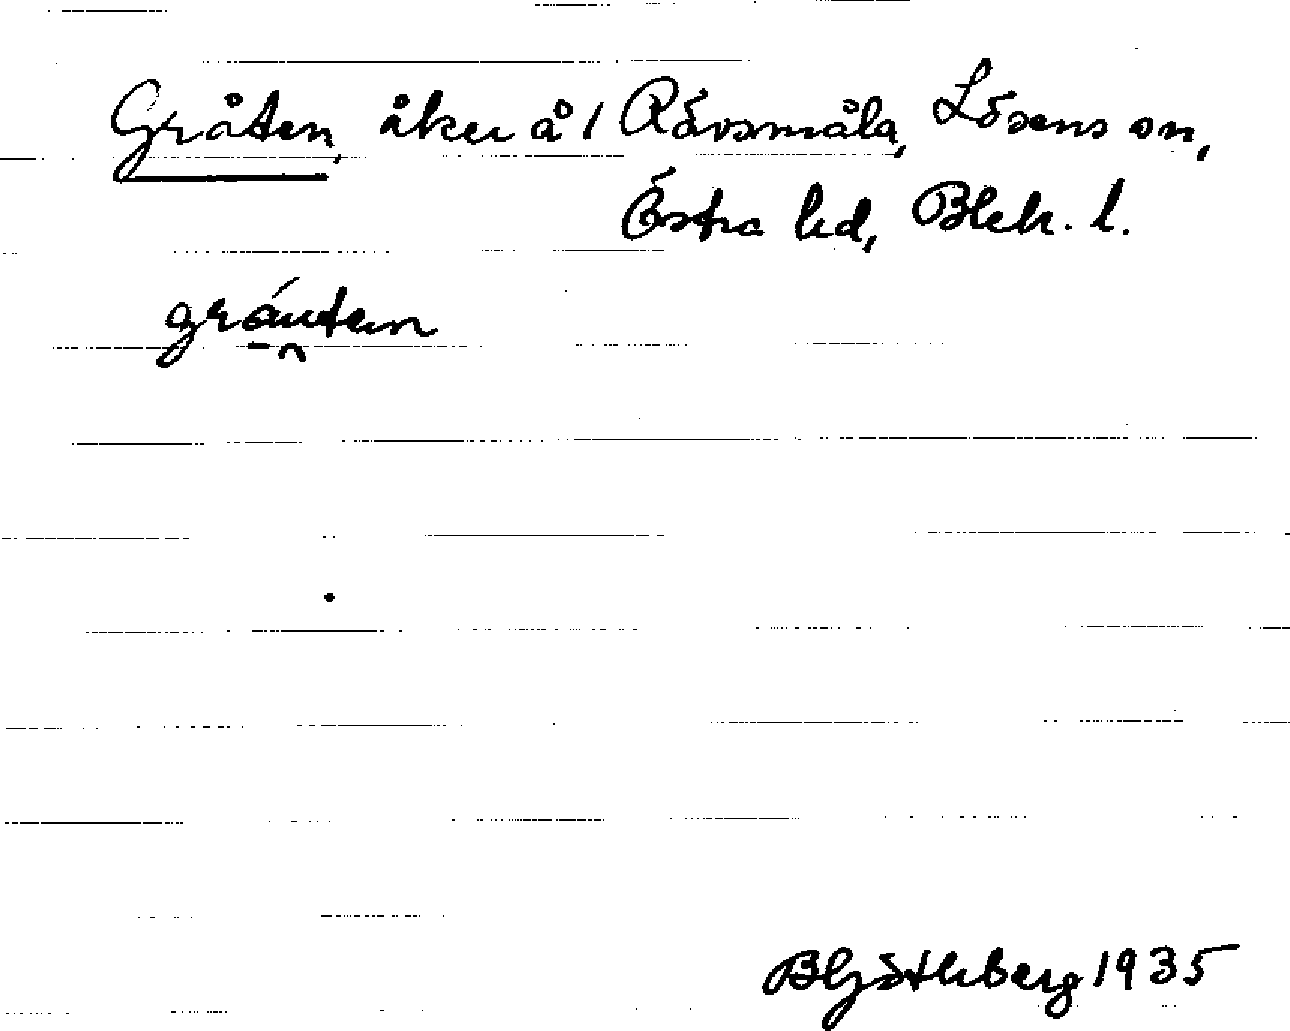 Gråten, åker å 1 Rövsmåla, Lösens sn,
Östra hd, Blek. l.
gráutəm
BGöthberg 1935